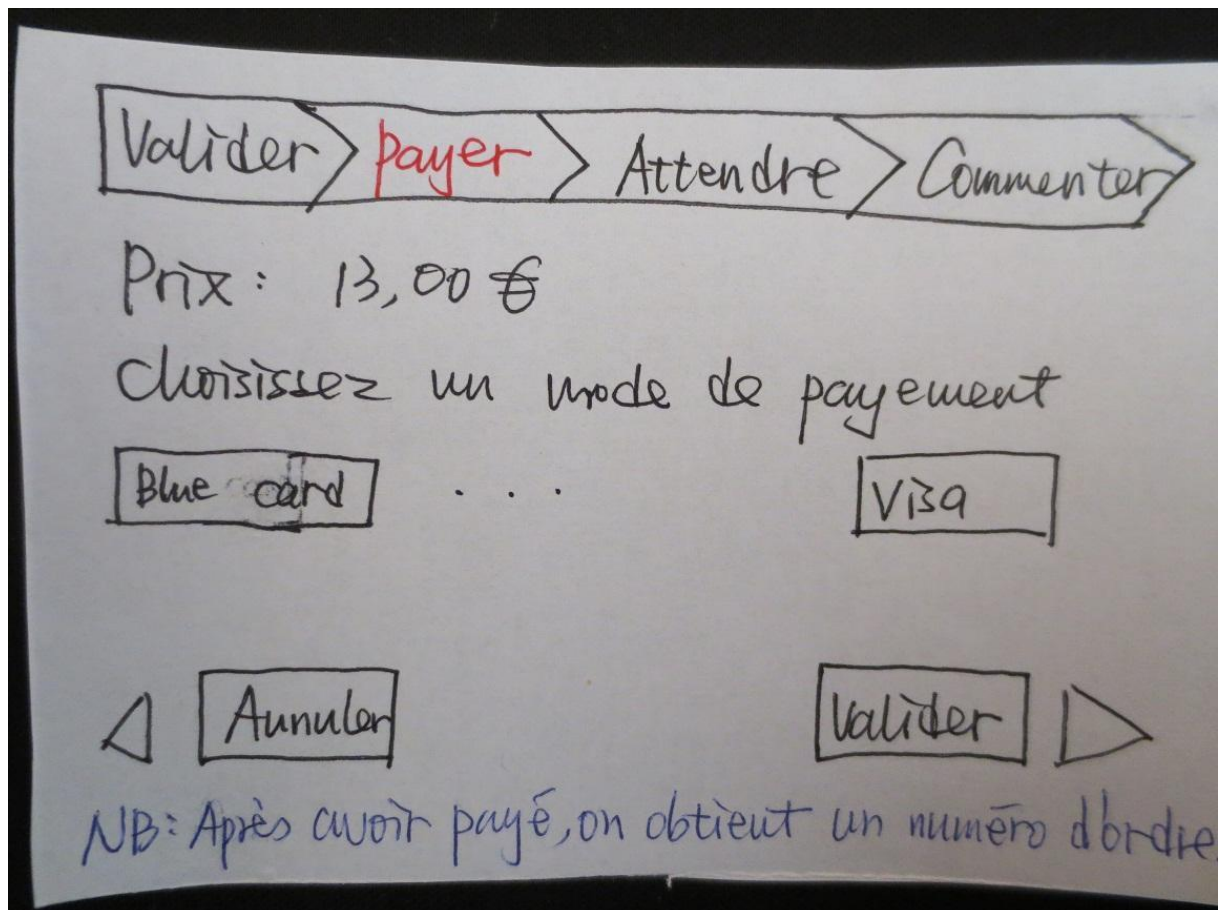 Valider payer Attendre Commenter
Prix : 13,00 €
Choisissez un mode de payement
Blue card . . . Visa
Annuler Valider
NB: Après avoir payé, on obtient un numéro d'ordre.